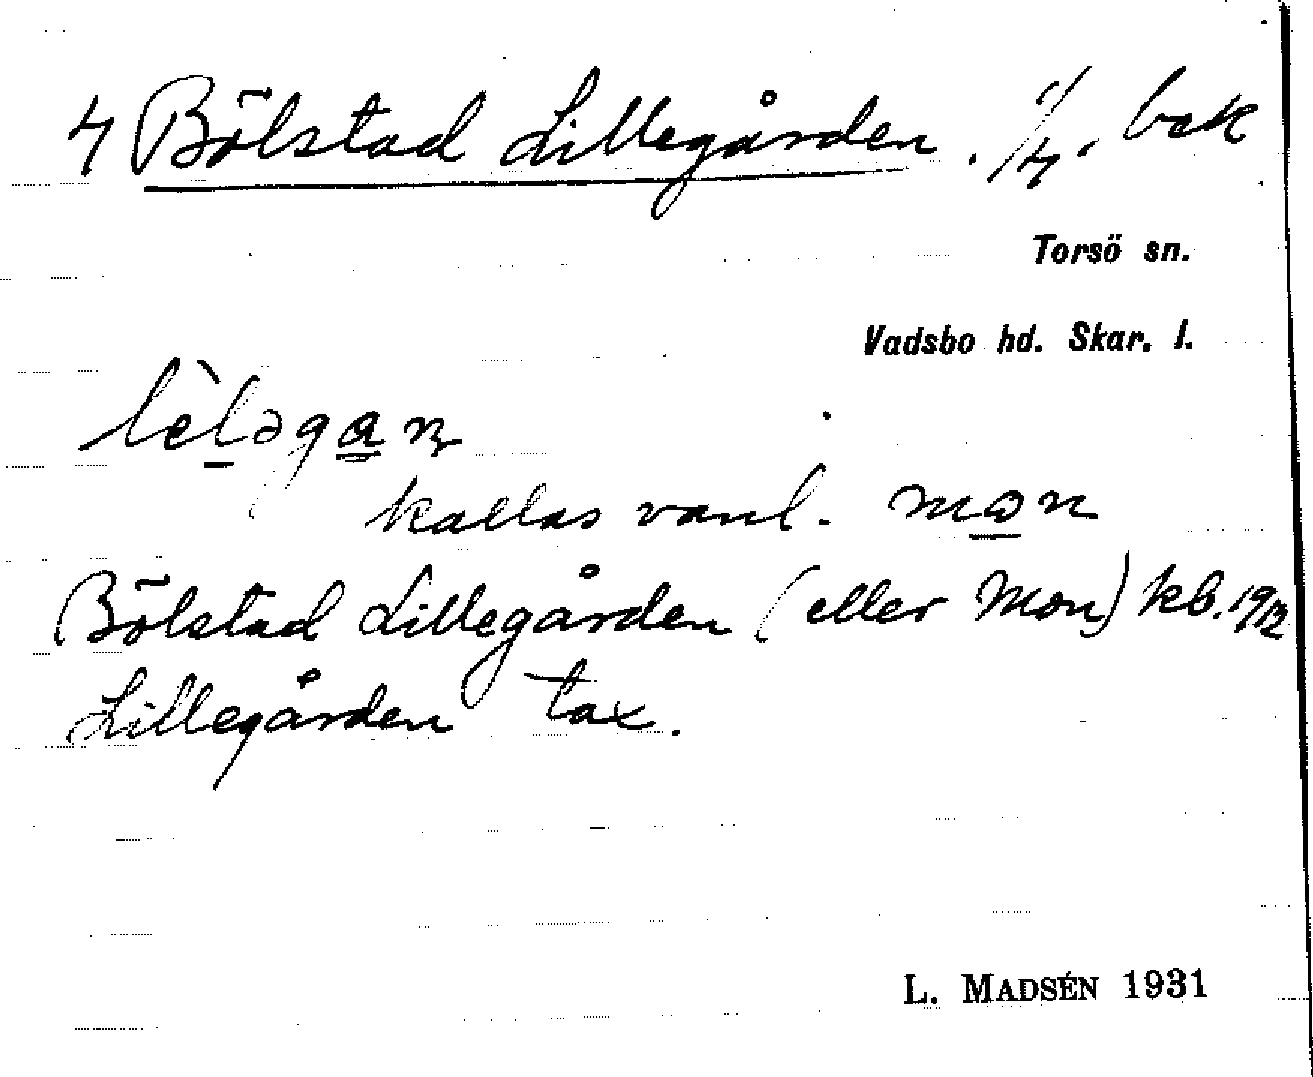 4 Bölstad Lillegården. 1/4. bok
Torsö sn.
Vadsbo hd. Skar. l.
kallas vanl. mɷn
Bölstad Lillegården (eller Mon) kb. 1912
Lillegården tax.
L. MADSÉN 1931